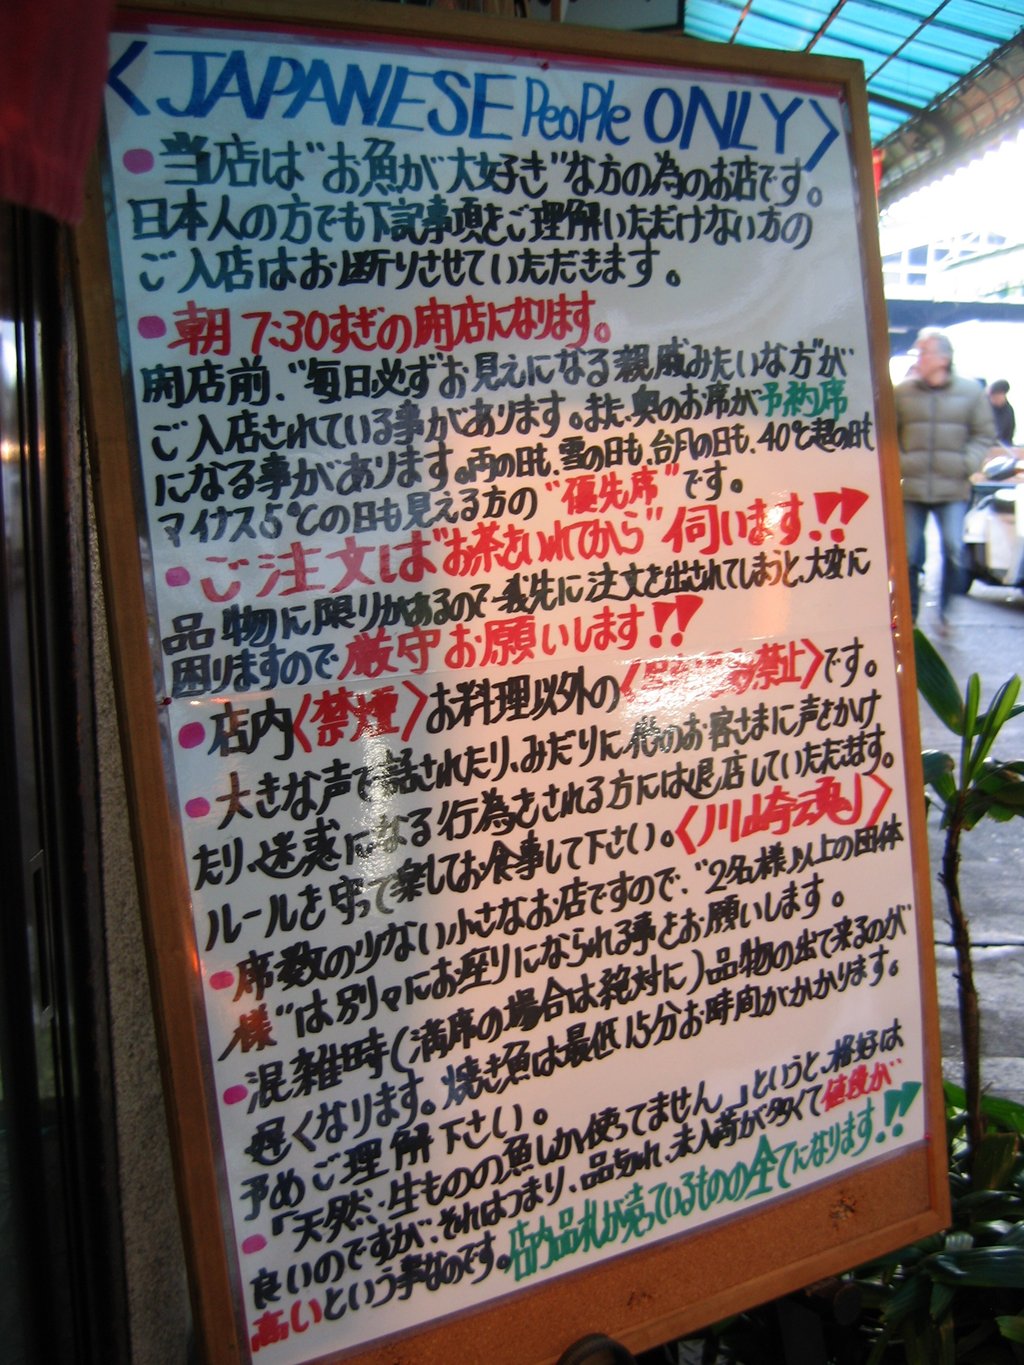 <JAPANESE PeoPle ONLY>
●当店は"お魚が大好き"な方の為のお店です。
日本人の方でも下記事項をご理解いただけない方の
ご入店はお断りさせていただきます。
●朝7:30すぎの開店になります。
開店前、"毎日必ずお見えになる親戚みたいな方"が
ご入店されている事があります。また、奥のお席が予約席
になる事があります。雨の日も、雪の日も、台風の日も、40℃超の日も
マイナス5℃の日も見える方の"優先席"です。
●ご注文は"お茶をいれてから"伺います!!
品物に限りがあるので我先に注文を出されてしまうと、大変に
困りますので厳守お願いします!!
●店内〈禁煙〉お料理以外の〈禁止〉です。
●大きな声で話されたり、みだりに他のお客さまに声をかけ
たり、迷惑になる行為をされる方には退店していただきます。
ルールを守って楽してお食事して下さい。〈川崎魂〉
●席数の少ない小さなお店ですので、"2名様以上の団体
様"は別々にお座りになられる事をお願いします。
●混雑時(満席の場合は絶対に)品物の出て来るのが
遅くなります。焼き魚は最低15分お時間がかかります。
予めご理解下さい。
●「天然・生ものの魚しか使ってません」というと、格好は
良いのですが、それはつまり、品切れ、未入荷が多くて値段が
高いという事なのです。店内品札が売っているものの全てになります!!